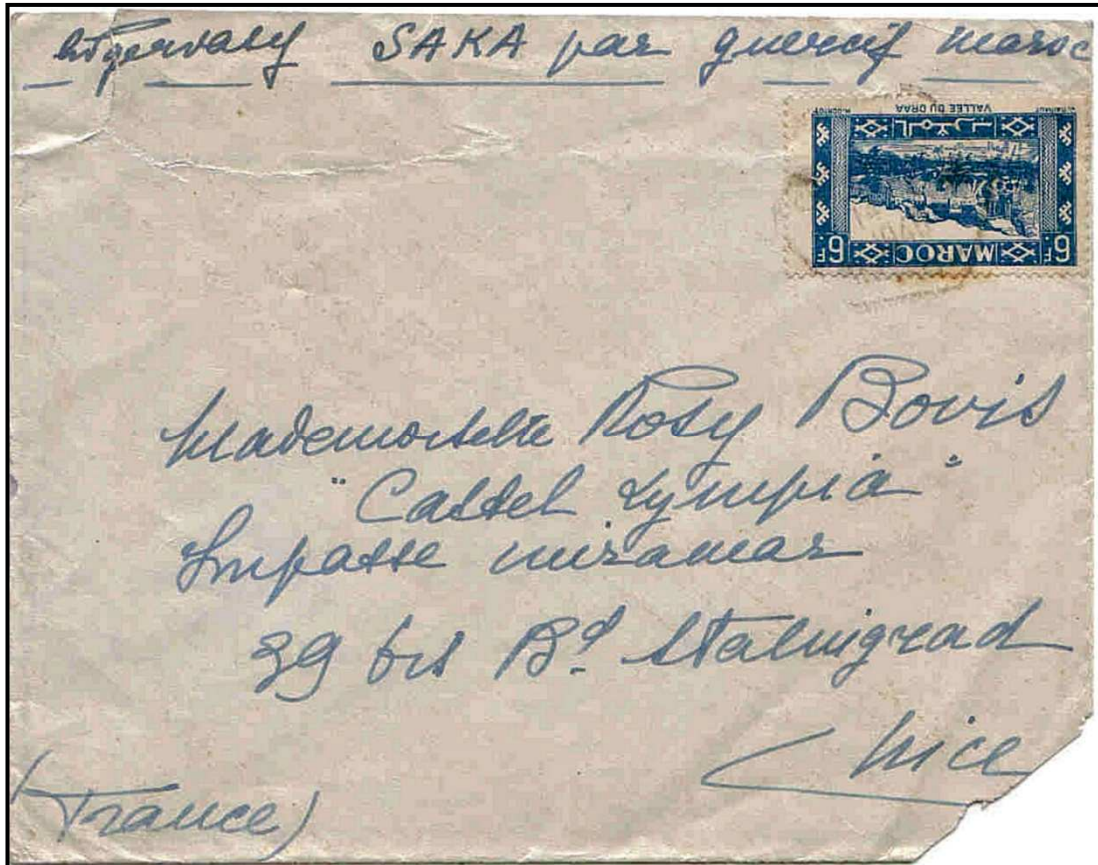 SAKA par guercif maroc
VALLÉE DU DRAA
6F MAROC 6F
Mademoiselle Rosy Bovis
"Castel Lympia"
Impasse miramar
39 bis Bd Stalingrad
Nice
(France)